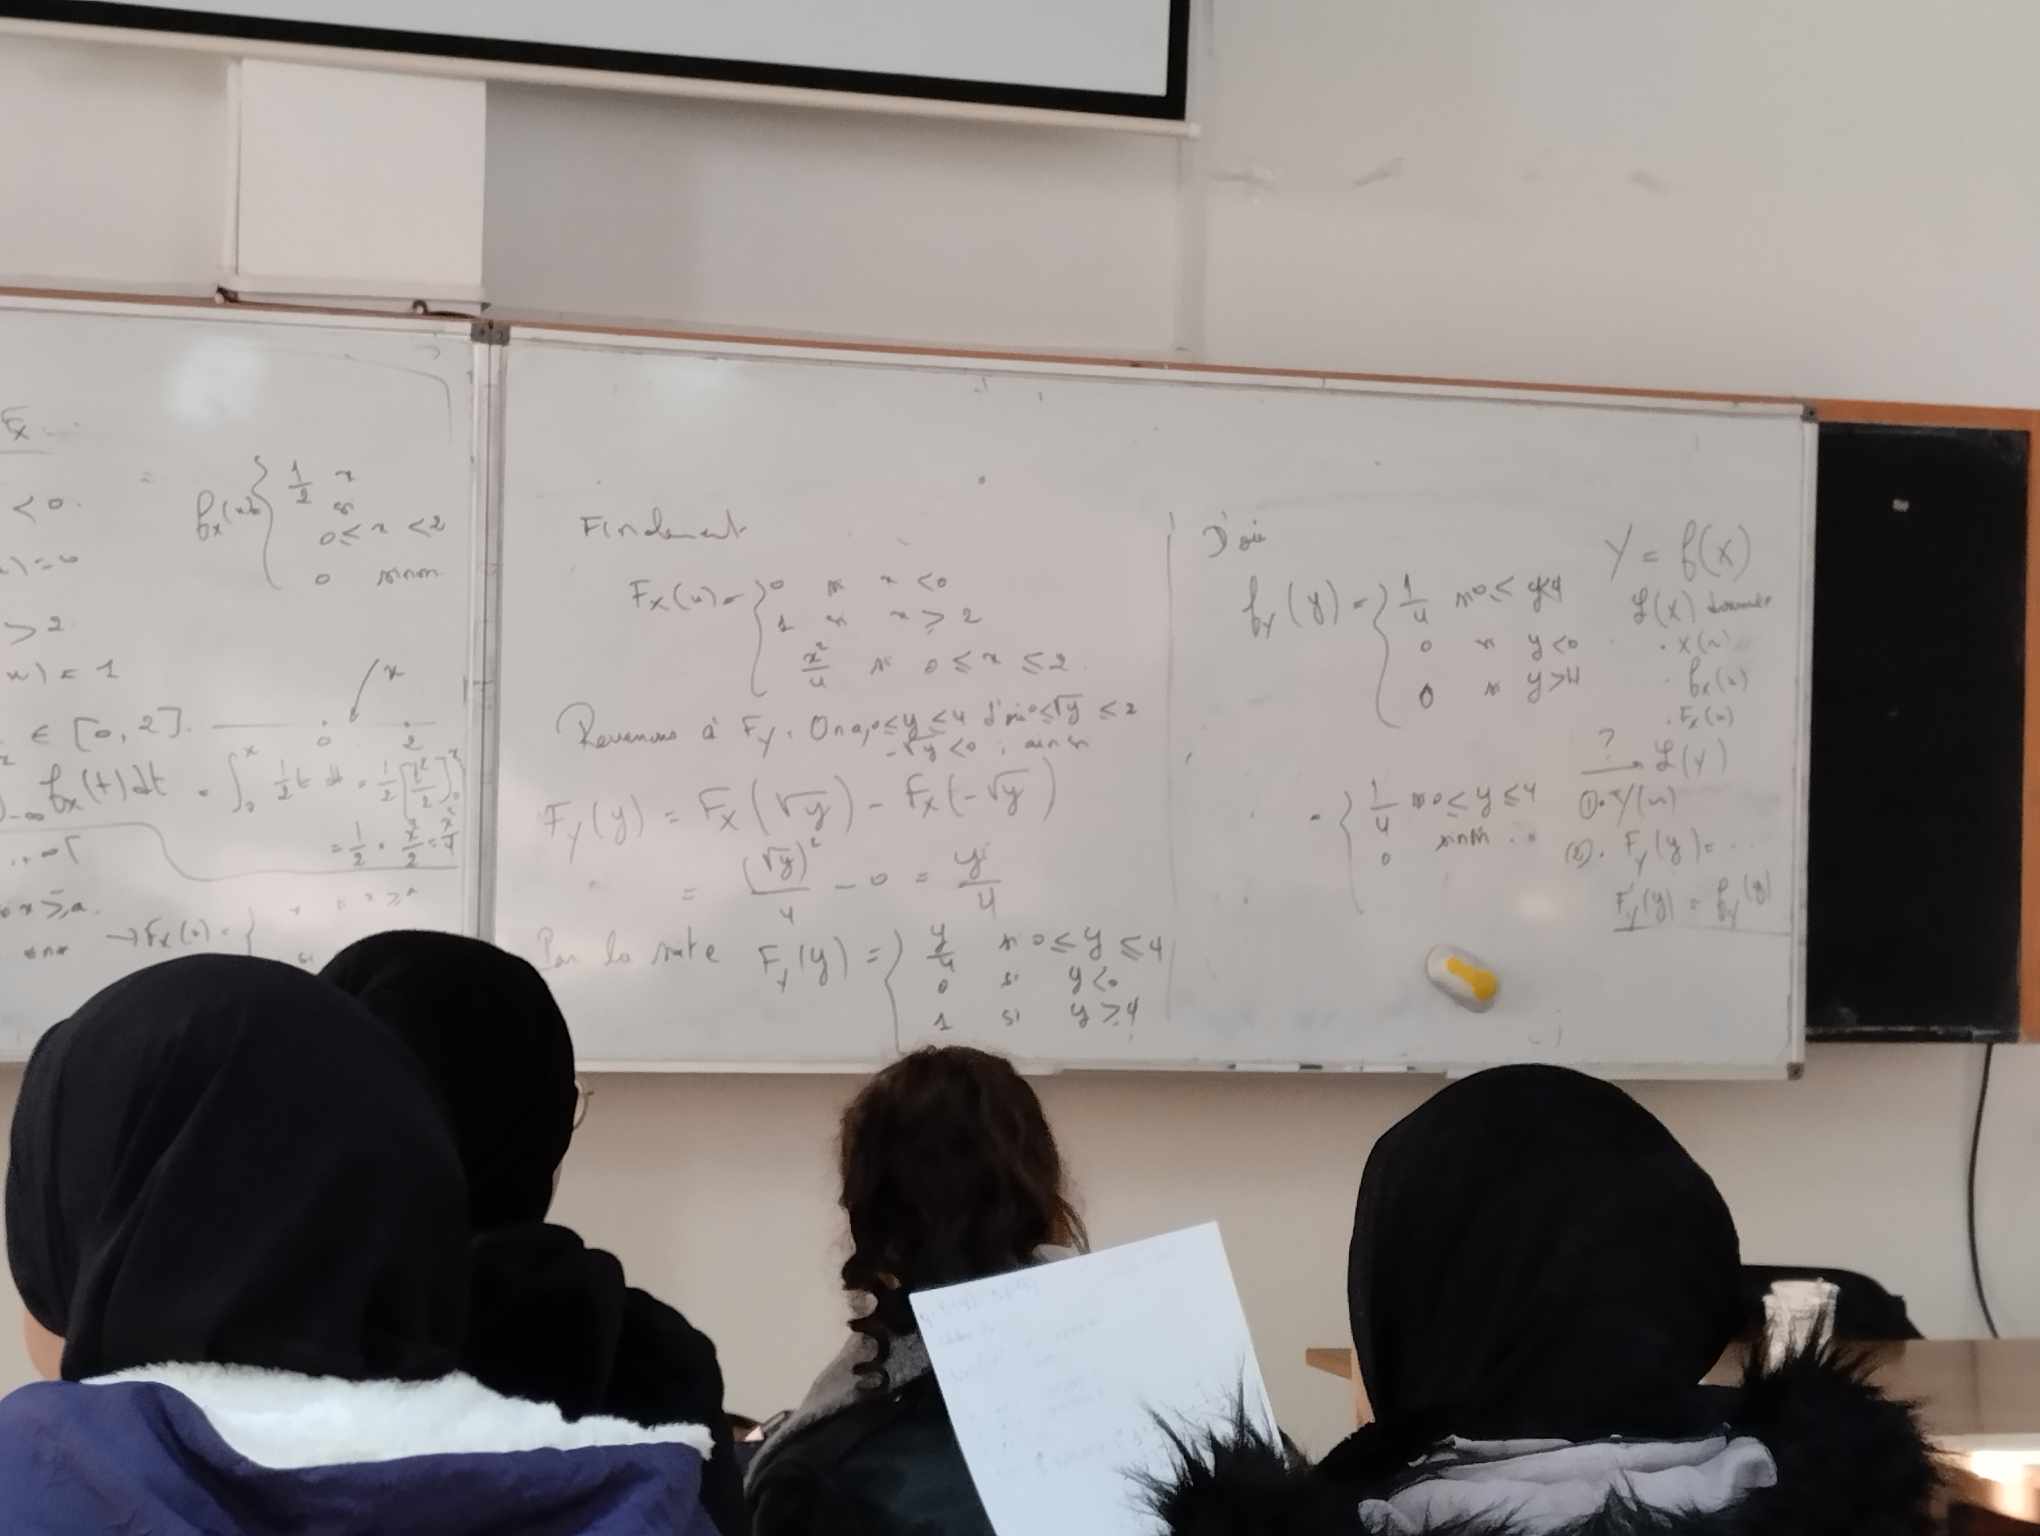 F_X
< 0.
) = 0
> 2
) = 1
∈ [0, 2].
f_X(x) = { 1/2 x si 0 ≤ x < 2
0 sinon
x
0 2
∫_{-∞}^x f_X(t) dt = ∫_0^x 1/2 t dt = 1/2 [t²/2]_0^x
= 1/2 · x²/2 = x²/4
x ≥ a.
→ F_X(x) = {
Finalement
F_X(x) = { 0 si x < 0
1 si x ≥ 2
x²/4 si 0 ≤ x ≤ 2
Revenons à F_Y. On a, 0 ≤ y ≤ 4 d'où 0 ≤ √y ≤ 2
-√y < 0 ; ainsi
F_Y(y) = F_X(√y) - F_X(-√y)
= (√y)²/4 - 0 = y/4
Par la suite F_Y(y) = { y/4 si 0 ≤ y ≤ 4
0 si y < 0
1 si y ≥ 4
D'où
f_Y(y) = { 1/4 si 0 ≤ y < 4
0 si y < 0
0 si y > 4
= { 1/4 si 0 ≤ y ≤ 4
0 sinon
Y = f(X)
ℒ(X) donnée
. X(Ω)
. f_X(x)
. F_X(x)
? → ℒ(Y)
①. Y(Ω)
②. F_Y(y) = ...
F'_Y(y) = f_Y(y)